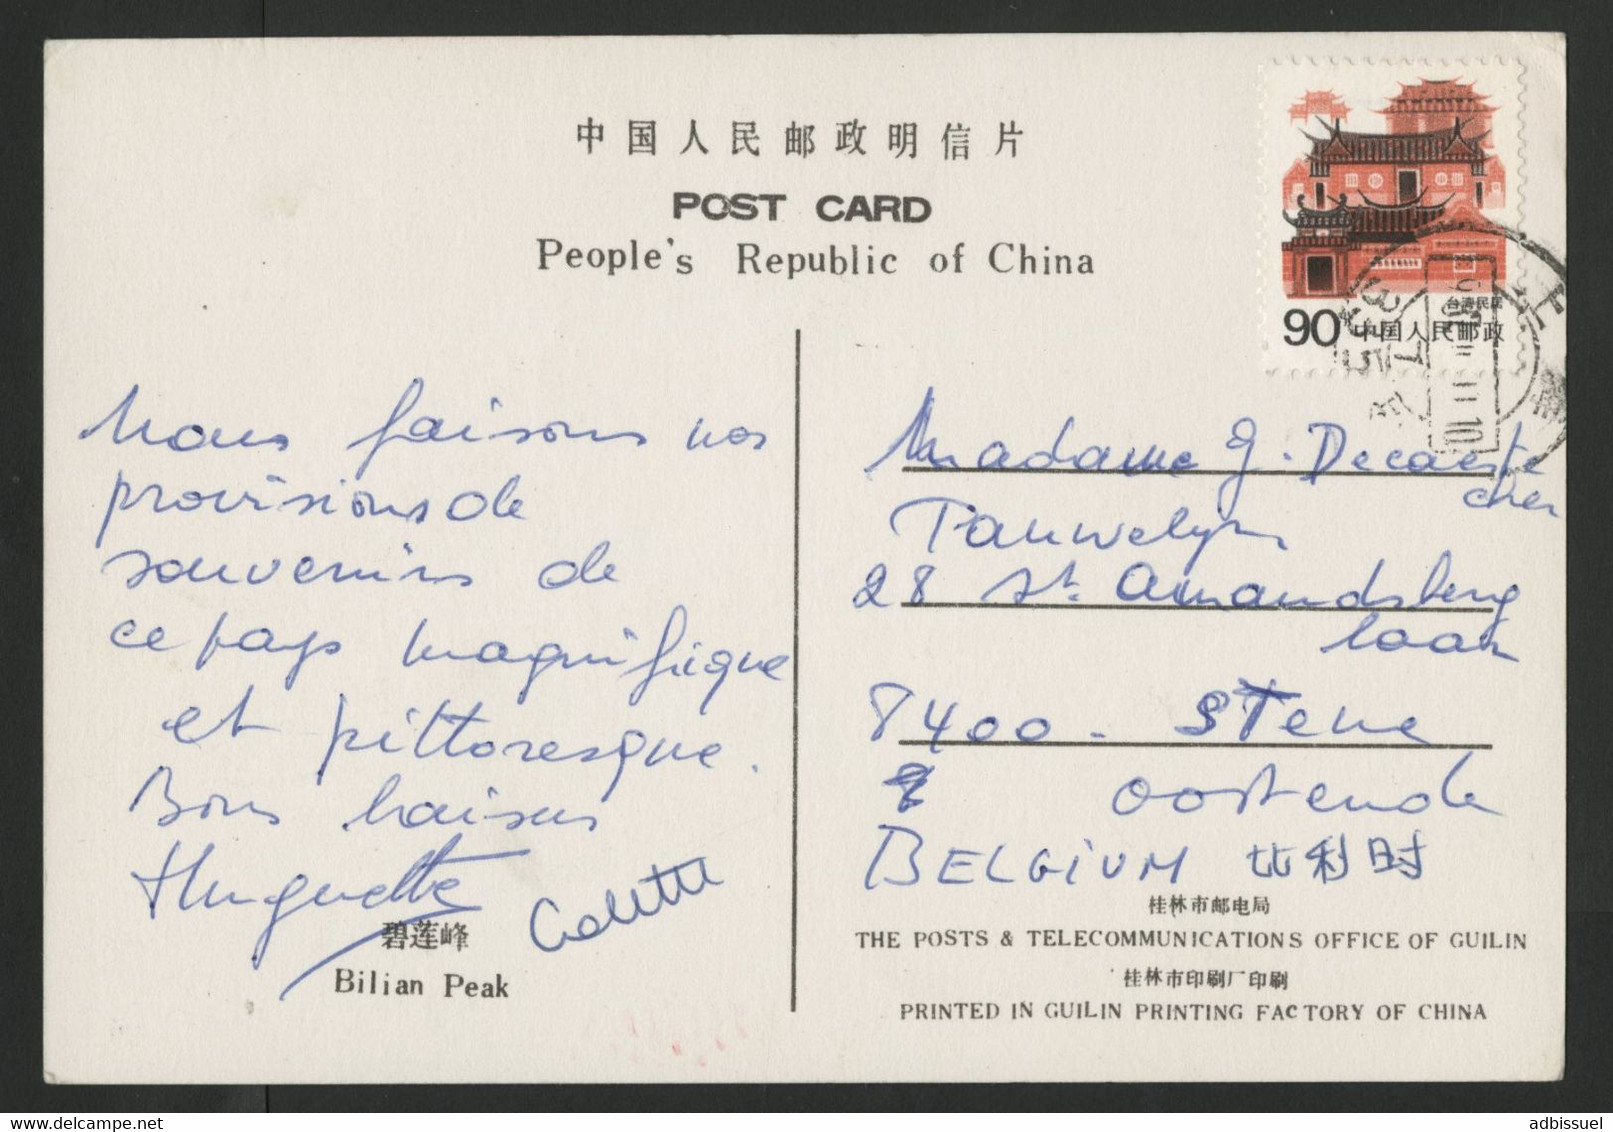 中国人民邮政明信片
POST CARD
People's Republic of China
台湾民居
90分 中国人民邮政
Nous faisons nos
provisions de
souvenirs de
ce pays magnifique
et pittoresque.
Bons baisers
Huguette
Colette
碧莲峰
Bilian Peak
Madame J. Decaeste
cher
Pauwelyn
28 St. Amandsberg
laan
8400 - STene
Oostende
BELGIUM 比利时
桂林市邮电局
THE POSTS & TELECOMMUNICATIONS OFFICE OF GUILIN
桂林市印刷厂印刷
PRINTED IN GUILIN PRINTING FACTORY OF CHINA
adbissuel